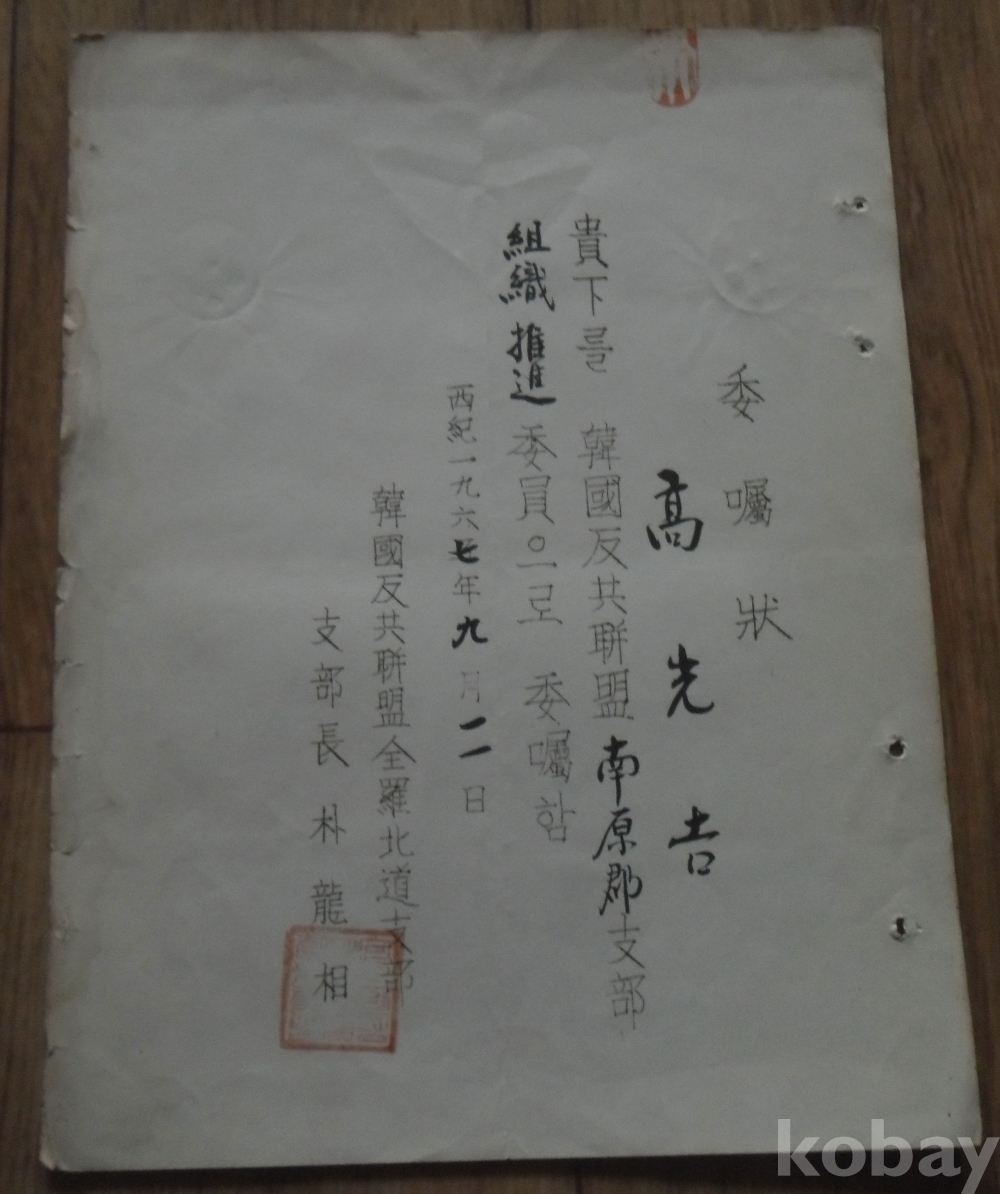 委囑狀
高光吉
貴下를 韓國反共聯盟南原郡支部
組織推進委員으로 委囑함
西紀一九六七年九月一一日
韓國反共聯盟全羅北道支部
支部長 朴龍相
kobay